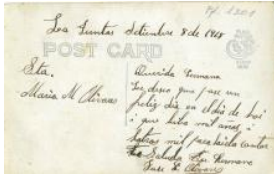 Las Juntas Setiembre 8 de 1918
POST CARD
Sta.
Maria M Olivas
Querida Hermana
Le deseo que pase un
feliz dia en el dia de hoi
i que hiba mil años i
mil para
Le Saluda Su Hermano
Jose L Olivas